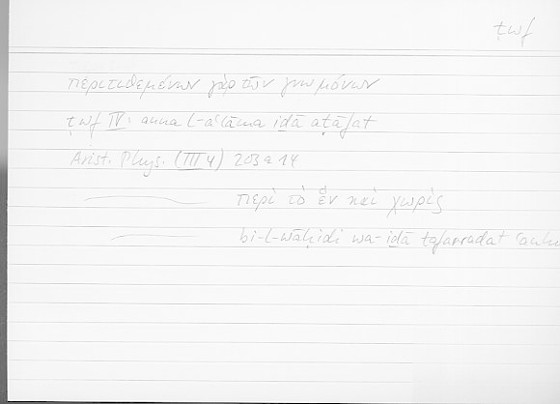 ṭwf
περιτιθεμένων γὰρ τῶν γνωμόνων
ṭwf IV: anna l-aʿlāma iḏā aṭāfat
Arist. Phys. (III 4) 203 a 14
περὶ τὸ ἓν καὶ χωρίς
bi-l-wāḥidi wa-iḏā tafarradat ʿanhu